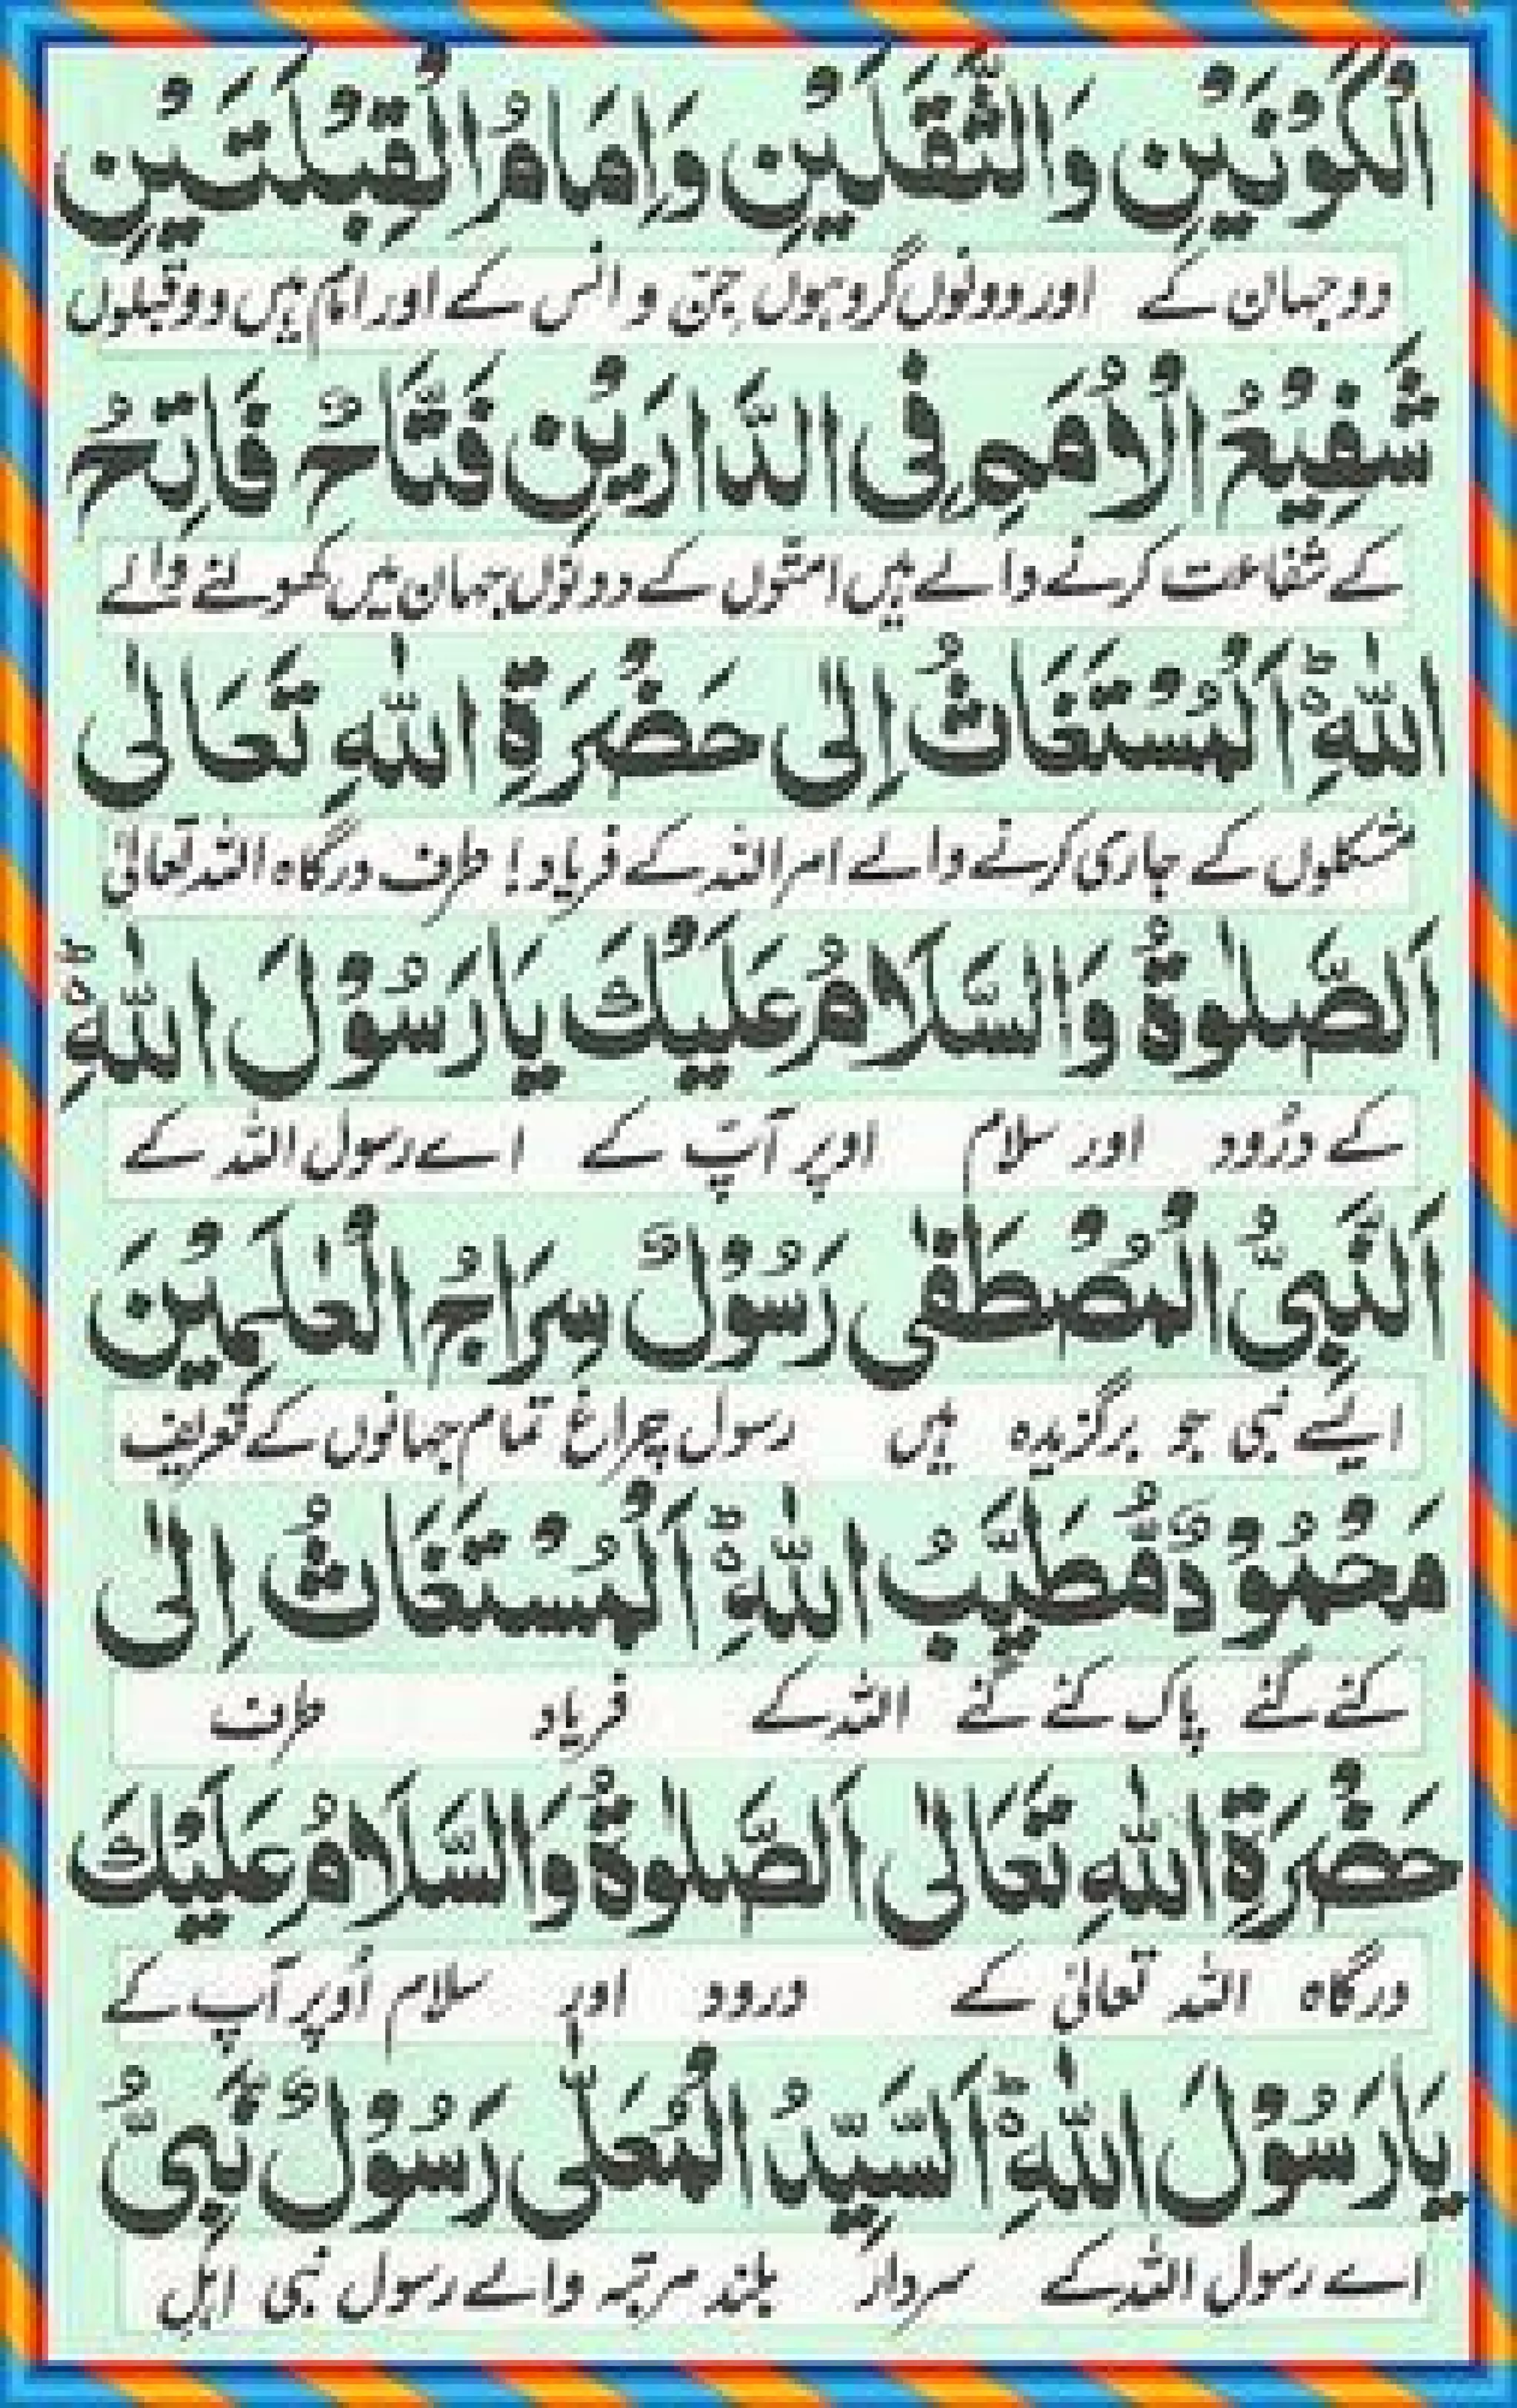 الْكَوْنَيْنِ وَالثَّقَلَيْنِ وَاِمَامُ الْقِبْلَتَيْنِ
دو جہان کے اور دونوں گروہوں جِنّ و انس کے اور امام ہیں دو قبلوں
شَفِيْعُ الْاُمَمِ فِى الدَّارَيْنِ فَتَّاحٌ فَاتِحُ
کے شفاعت کرنے والے ہیں امتوں کے دونوں جہان میں کھولنے والے
اللهِ ؕ اَلْمُسْتَغَاثُ اِلٰى حَضْرَةِ اللهِ تَعَالٰى
مشکلوں کے جاری کرنے والے امر اللہ کے فریاد! طرف درگاہ اللہ تعالیٰ
اَلصَّلٰوةُ وَالسَّلَامُ عَلَيْكَ يَا رَسُوْلَ اللهِ ؕ
کے درُود اور سلام اوپر آپؐ کے اے رسول اللہ کے
اَلنَّبِىُّ الْمُصْطَفٰى رَسُوْلٌ سِرَاجُ الْعٰلَمِيْنَ
ایسے نبی جو برگزیدہ ہیں رسول چراغ تمام جہانوں کے تعریف
مَحْمُوْدٌ مُّطَيَّبُ اللهِ ؕ اَلْمُسْتَغَاثُ اِلٰى
کئے گئے پاک کئے گئے اللہ کے فریاد طرف
حَضْرَةِ اللهِ تَعَالٰى اَلصَّلٰوةُ وَالسَّلَامُ عَلَيْكَ
درگاہ اللہ تعالیٰ کے درود اور سلام اُوپر آپ کے
يَا رَسُوْلَ اللهِ ؕ اَلسَّيِّدُ الْمُعَلّٰى رَسُوْلٌ نَّبِىُّ
اے رسول اللہ کے سردار بلند مرتبہ والے رسول نبی اہل